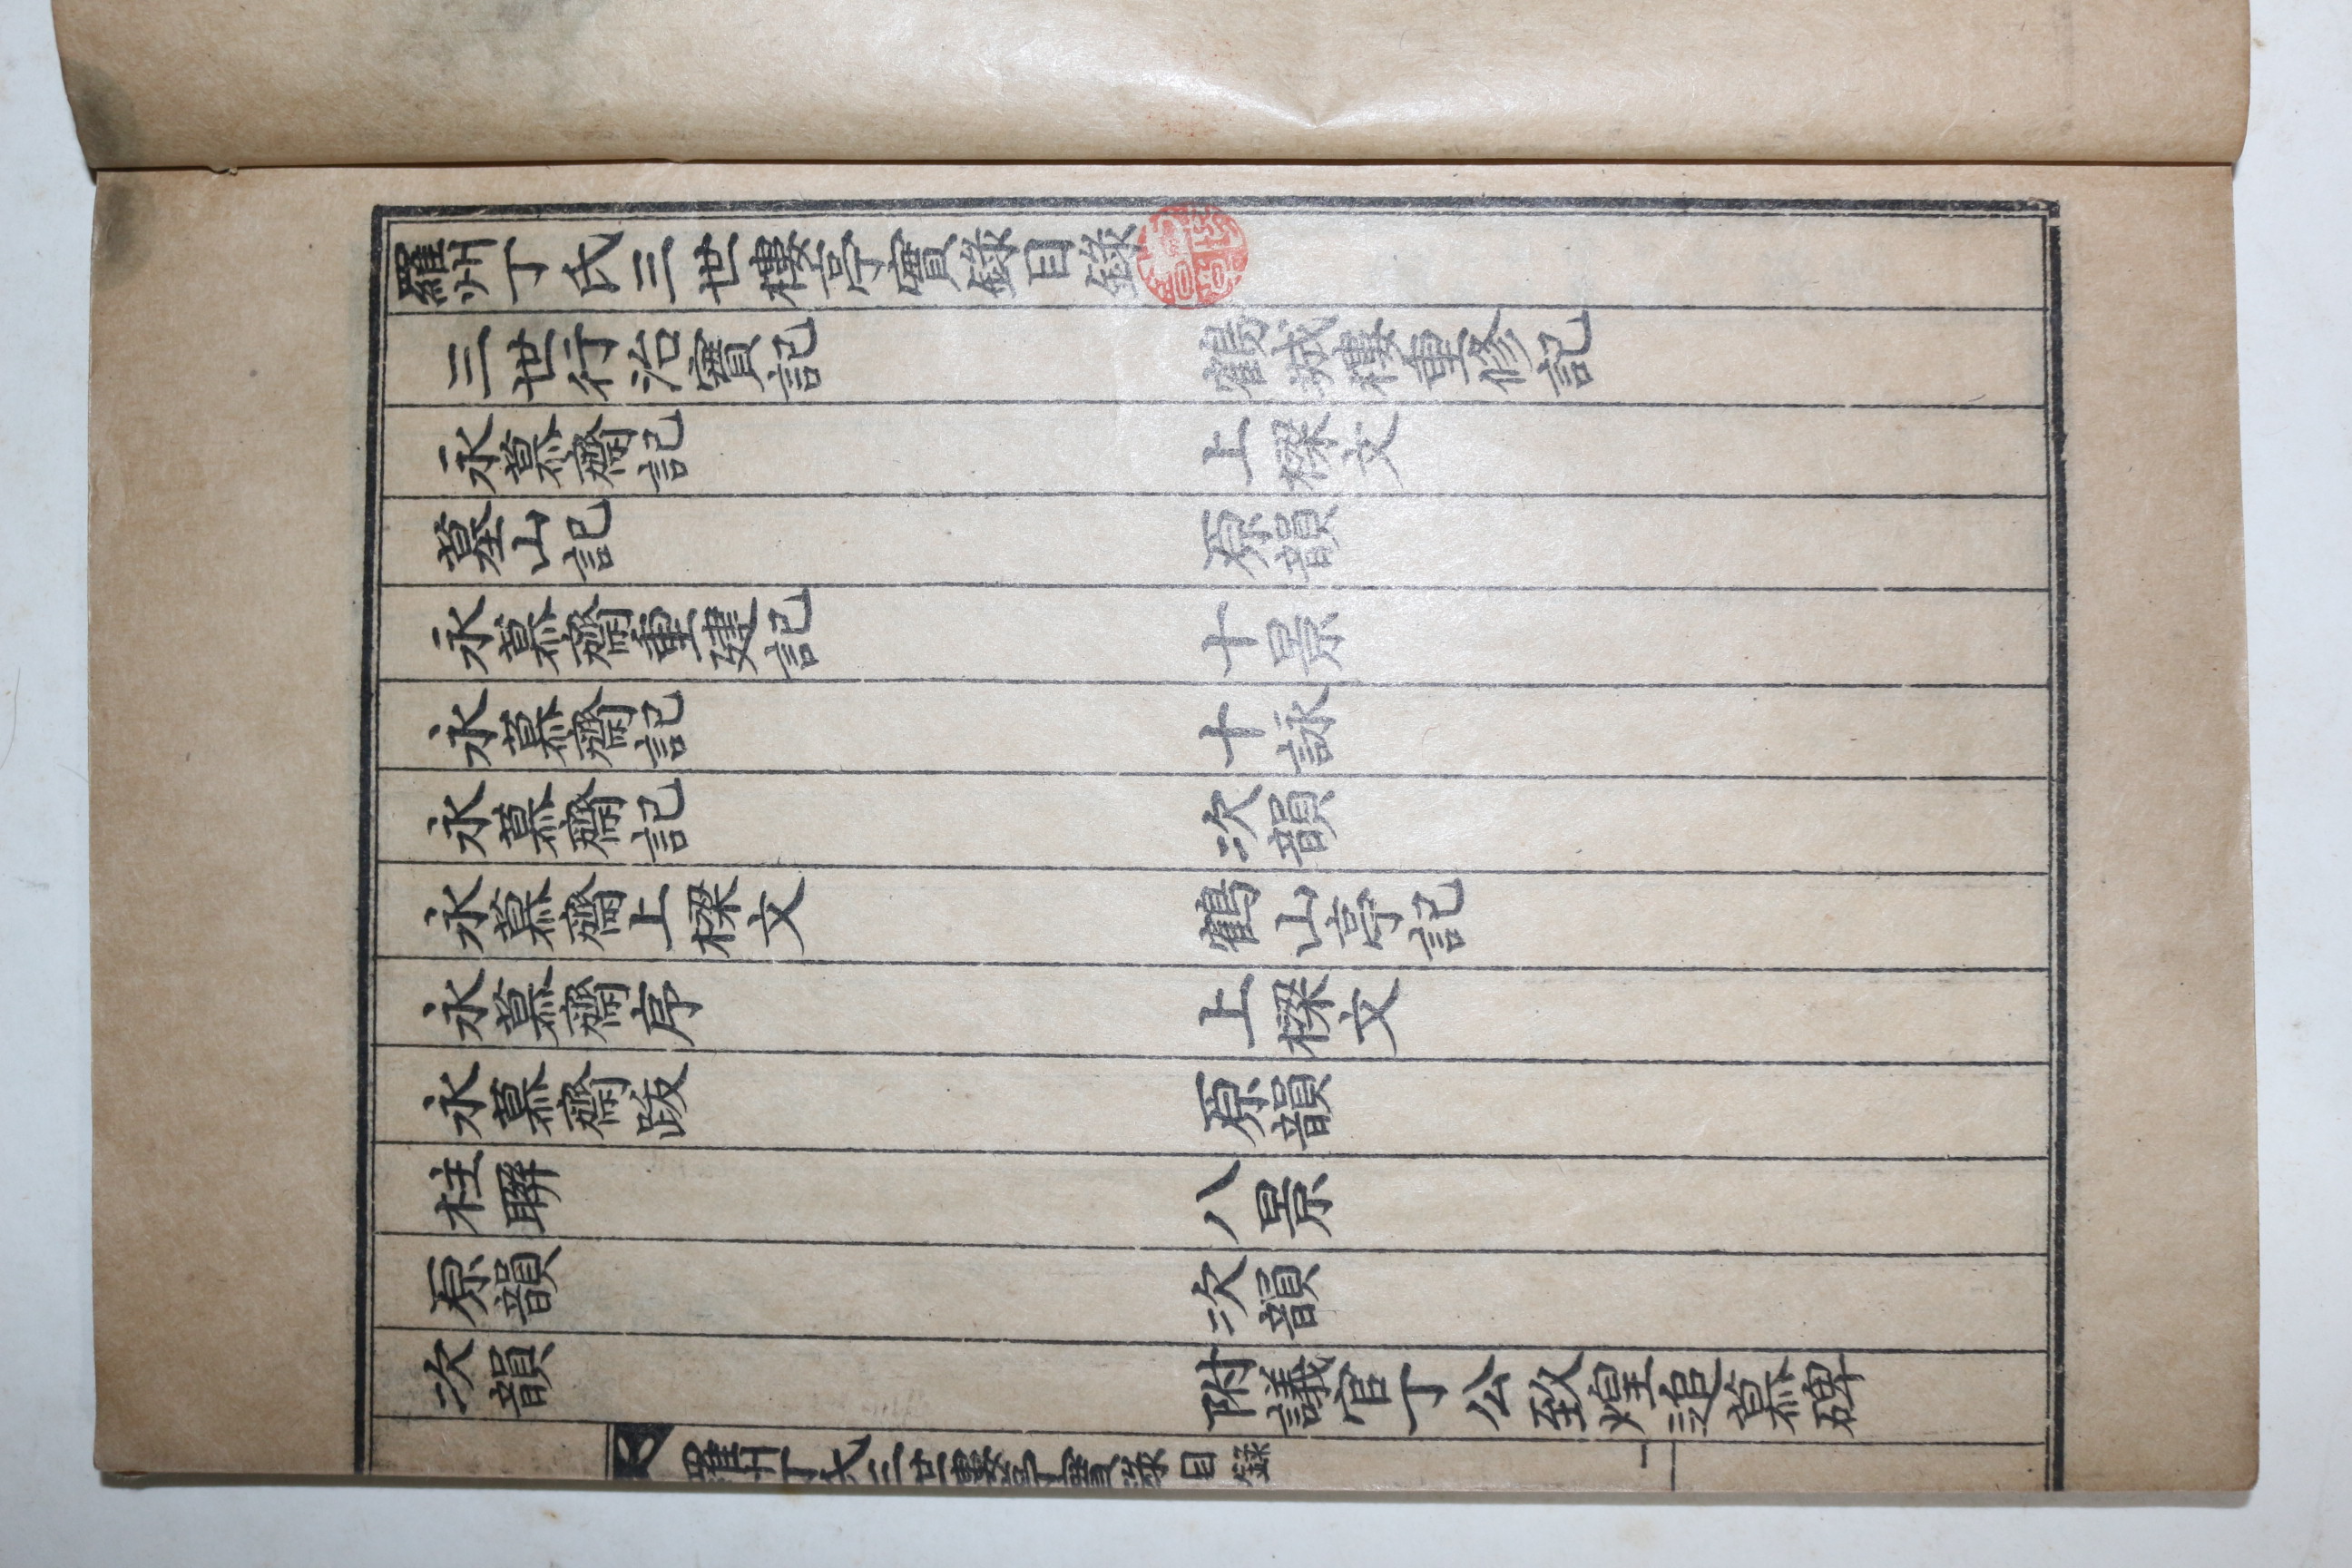 羅州丁氏三世樓亭實錄目錄
三世行治實記
鶴城樓重修記
永慕齋記
上樑文
墓山記
原韻
永慕齋重建記
十景
永慕齋記
十詠
永慕齋記
次韻
永慕齋上樑文
鶴山亭記
永慕齋序
上樑文
永慕齋跋
原韻
柱聯
八景
原韻
次韻
次韻
附議官丁公致煌追慕碑
羅州丁氏三世樓亭實錄目錄
一